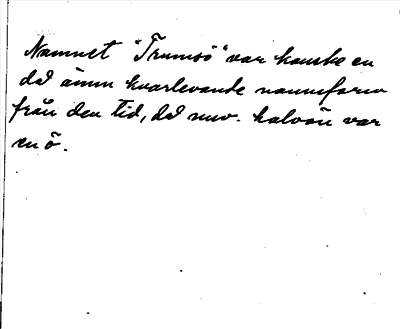 Namnet "Trumsö" var kanske en
då ännu kvarlevande namnform
från den tid, då nuv. halvön var
en ö.